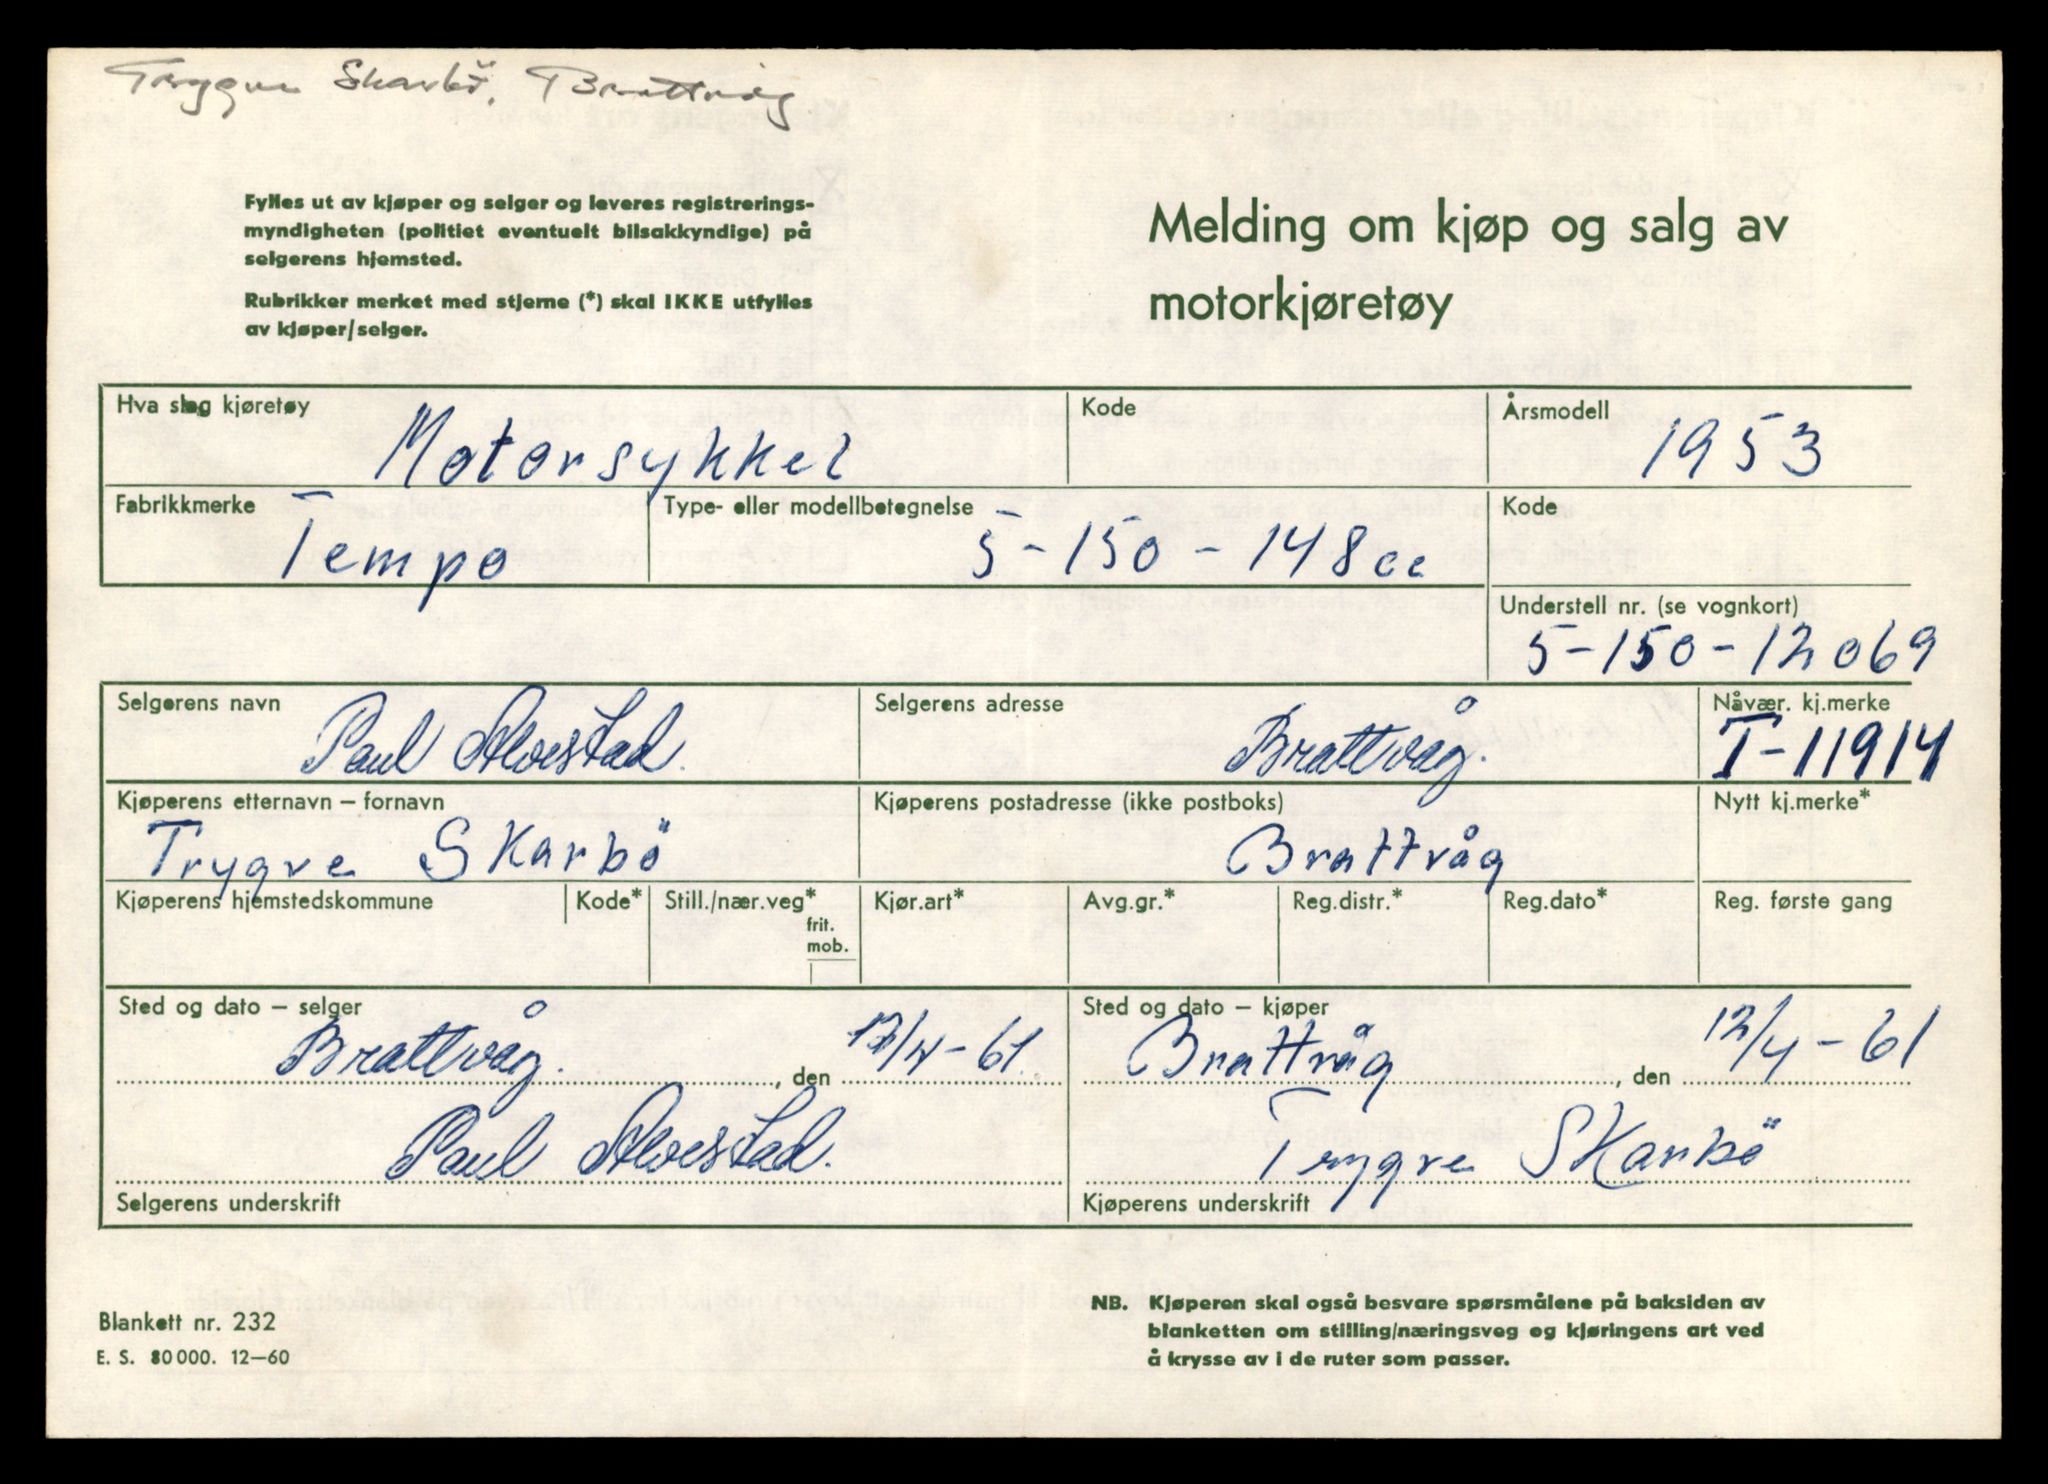 Trygve Skarbö, Brattvåg
Fylles ut av kjøper og selger og leveres registrerings-
myndigheten (politiet eventuelt bilsakkyndige) på
selgerens hjemsted.
Rubrikker merket med stjerne (*) skal IKKE utfylles
av kjøper/selger.
Melding om kjøp og salg av
motorkjøretøy
Hva slag kjøretøy Kode Årsmodell
Motorsykkel 1953
Fabrikkmerke Type- eller modellbetegnelse Kode
Tempo 5-150-148cc
Understell nr. (se vognkort)
5-150-12069
Selgerens navn Selgerens adresse Nåvær. kj.merke
Paul Alvestad. Brattvåg. T-11914
Kjøperens etternavn – fornavn Kjøperens postadresse (ikke postboks) Nytt kj.merke*
Trygve Skarbö Brattvåg
Kjøperens hjemstedskommune Kode* Still./nær.veg* Kjør.art* Avg.gr.* Reg.distr.* Reg.dato* Reg. første gang
frit.
mob.
Sted og dato – selger Sted og dato – kjøper
Brattvåg. , den 12/4-61. Brattvåg , den 12/4-61
Paul Alvestad. Trygve Skarbö
Selgerens underskrift Kjøperens underskrift
Blankett nr. 232
E. S. 80 000. 12–60
NB. Kjøperen skal også besvare spørsmålene på baksiden av
blanketten om stilling/næringsveg og kjøringens art ved
å krysse av i de ruter som passer.